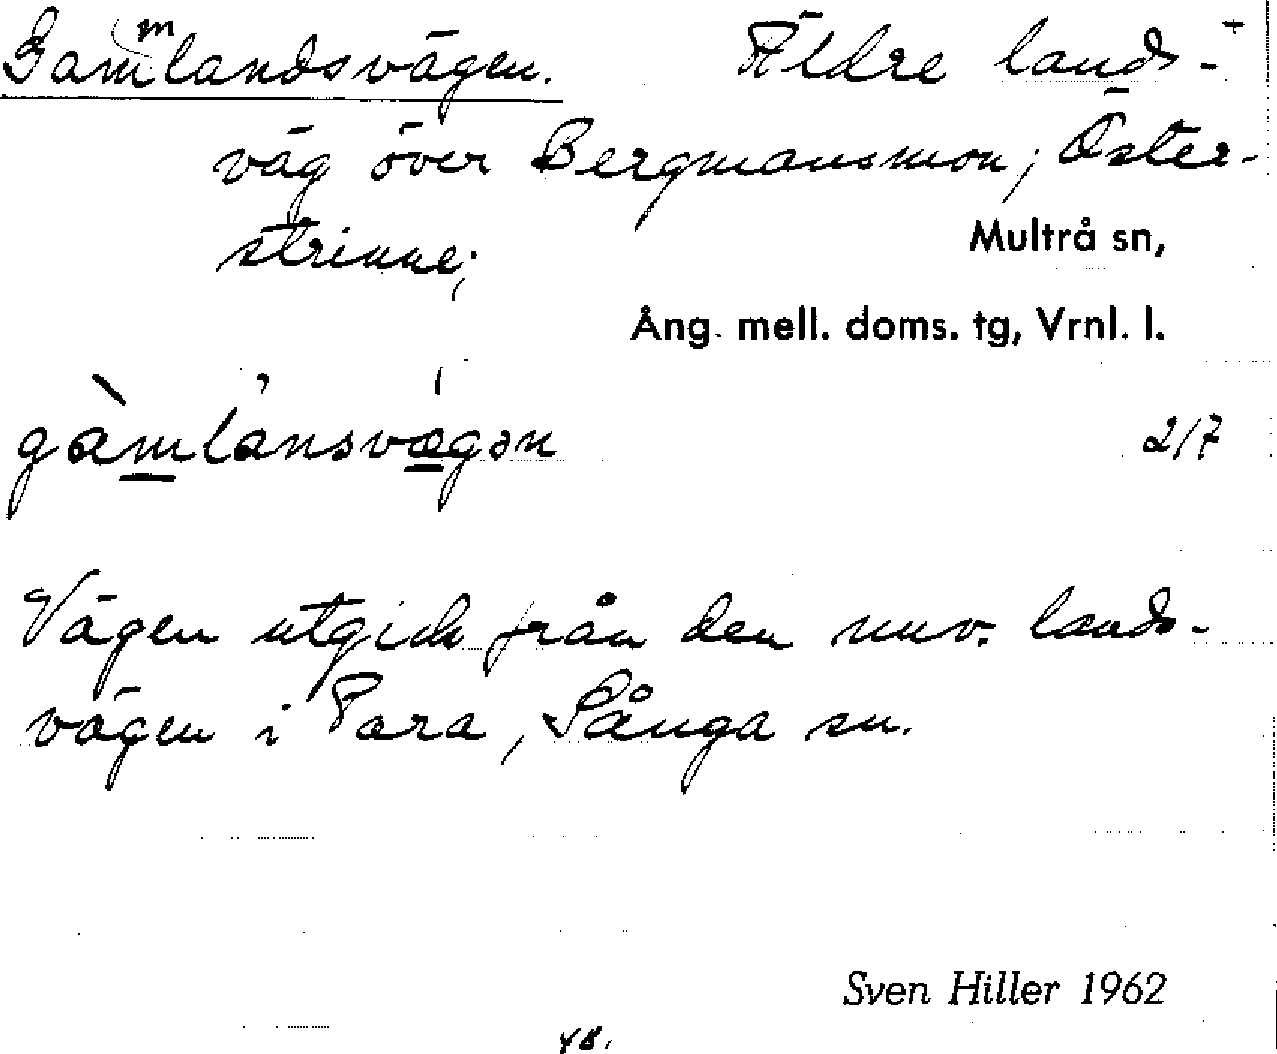 Gammlandsvägen. Äldre lands-
väg över Bergmansmon; Öster-
strinne;
Multrå sn,
Ång. mell. doms. tg, Vrnl. l.
gàmlánsvǽgən 2/7
Vägen utgick från den nuv. lands-
vägen i Para, Sånga sn.
Sven Hiller 1962